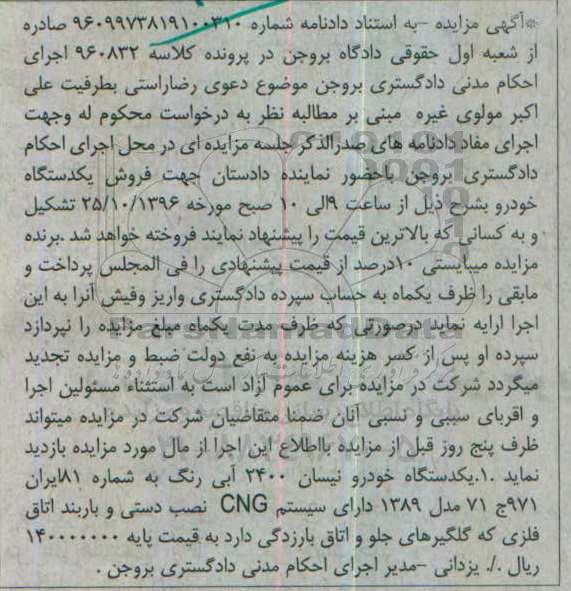 *آگهی مزایده –به استناد دادنامه شماره ۹۶۰۹۹۷۳۸۱۹۱۰۰۳۱۰ صادره
از شعبه اول حقوقی دادگاه بروجن در پرونده کلاسه ۹۶۰۸۳۲ اجرای
احکام مدنی دادگستری بروجن موضوع دعوی رضاراستی بطرفیت علی
اکبر مولوی غیره مبنی بر مطالبه نظر به درخواست محکوم له وجهت
اجرای مفاد دادنامه های صدرالذکر جلسه مزایده ای در محل اجرای احکام
دادگستری بروجن باحضور نماینده دادستان جهت فروش یکدستگاه
خودرو بشرح ذیل از ساعت ۹الی ۱۰ صبح مورخه ۲۵/۱۰/۱۳۹۶ تشکیل
و به کسانی که بالاترین قیمت را پیشنهاد نمایند فروخته خواهد شد .برنده
مزایده میبایستی ۱۰درصد از قیمت پیشنهادی را فی المجلس پرداخت و
مابقی را ظرف یکماه به حساب سپرده دادگستری واریز وفیش آنرا به این
اجرا ارایه نماید درصورتی که ظرف مدت یکماه مبلغ مزایده را نپردازد
سپرده او پس از کسر هزینه مزایده به نفع دولت ضبط و مزایده تجدید
میگردد شرکت در مزایده برای عموم آزاد است به استثناء مسئولین اجرا
و اقربای سببی و نسبی آنان ضمنا متقاضیان شرکت در مزایده میتواند
ظرف پنج روز قبل از مزایده بااطلاع این اجرا از مال مورد مزایده بازدید
نماید .۱.یکدستگاه خودرو نیسان ۲۴۰۰ آبی رنگ به شماره ۸۱ایران
۹۷۱ج ۷۱ مدل ۱۳۸۹ دارای سیستم CNG نصب دستی و باربند اتاق
فلزی که گلگیرهای جلو و اتاق بارزدگی دارد به قیمت پایه ۱۴۰۰۰۰۰۰۰
ریال ./. یزدانی –مدیر اجرای احکام مدنی دادگستری بروجن .
ParsNamadData